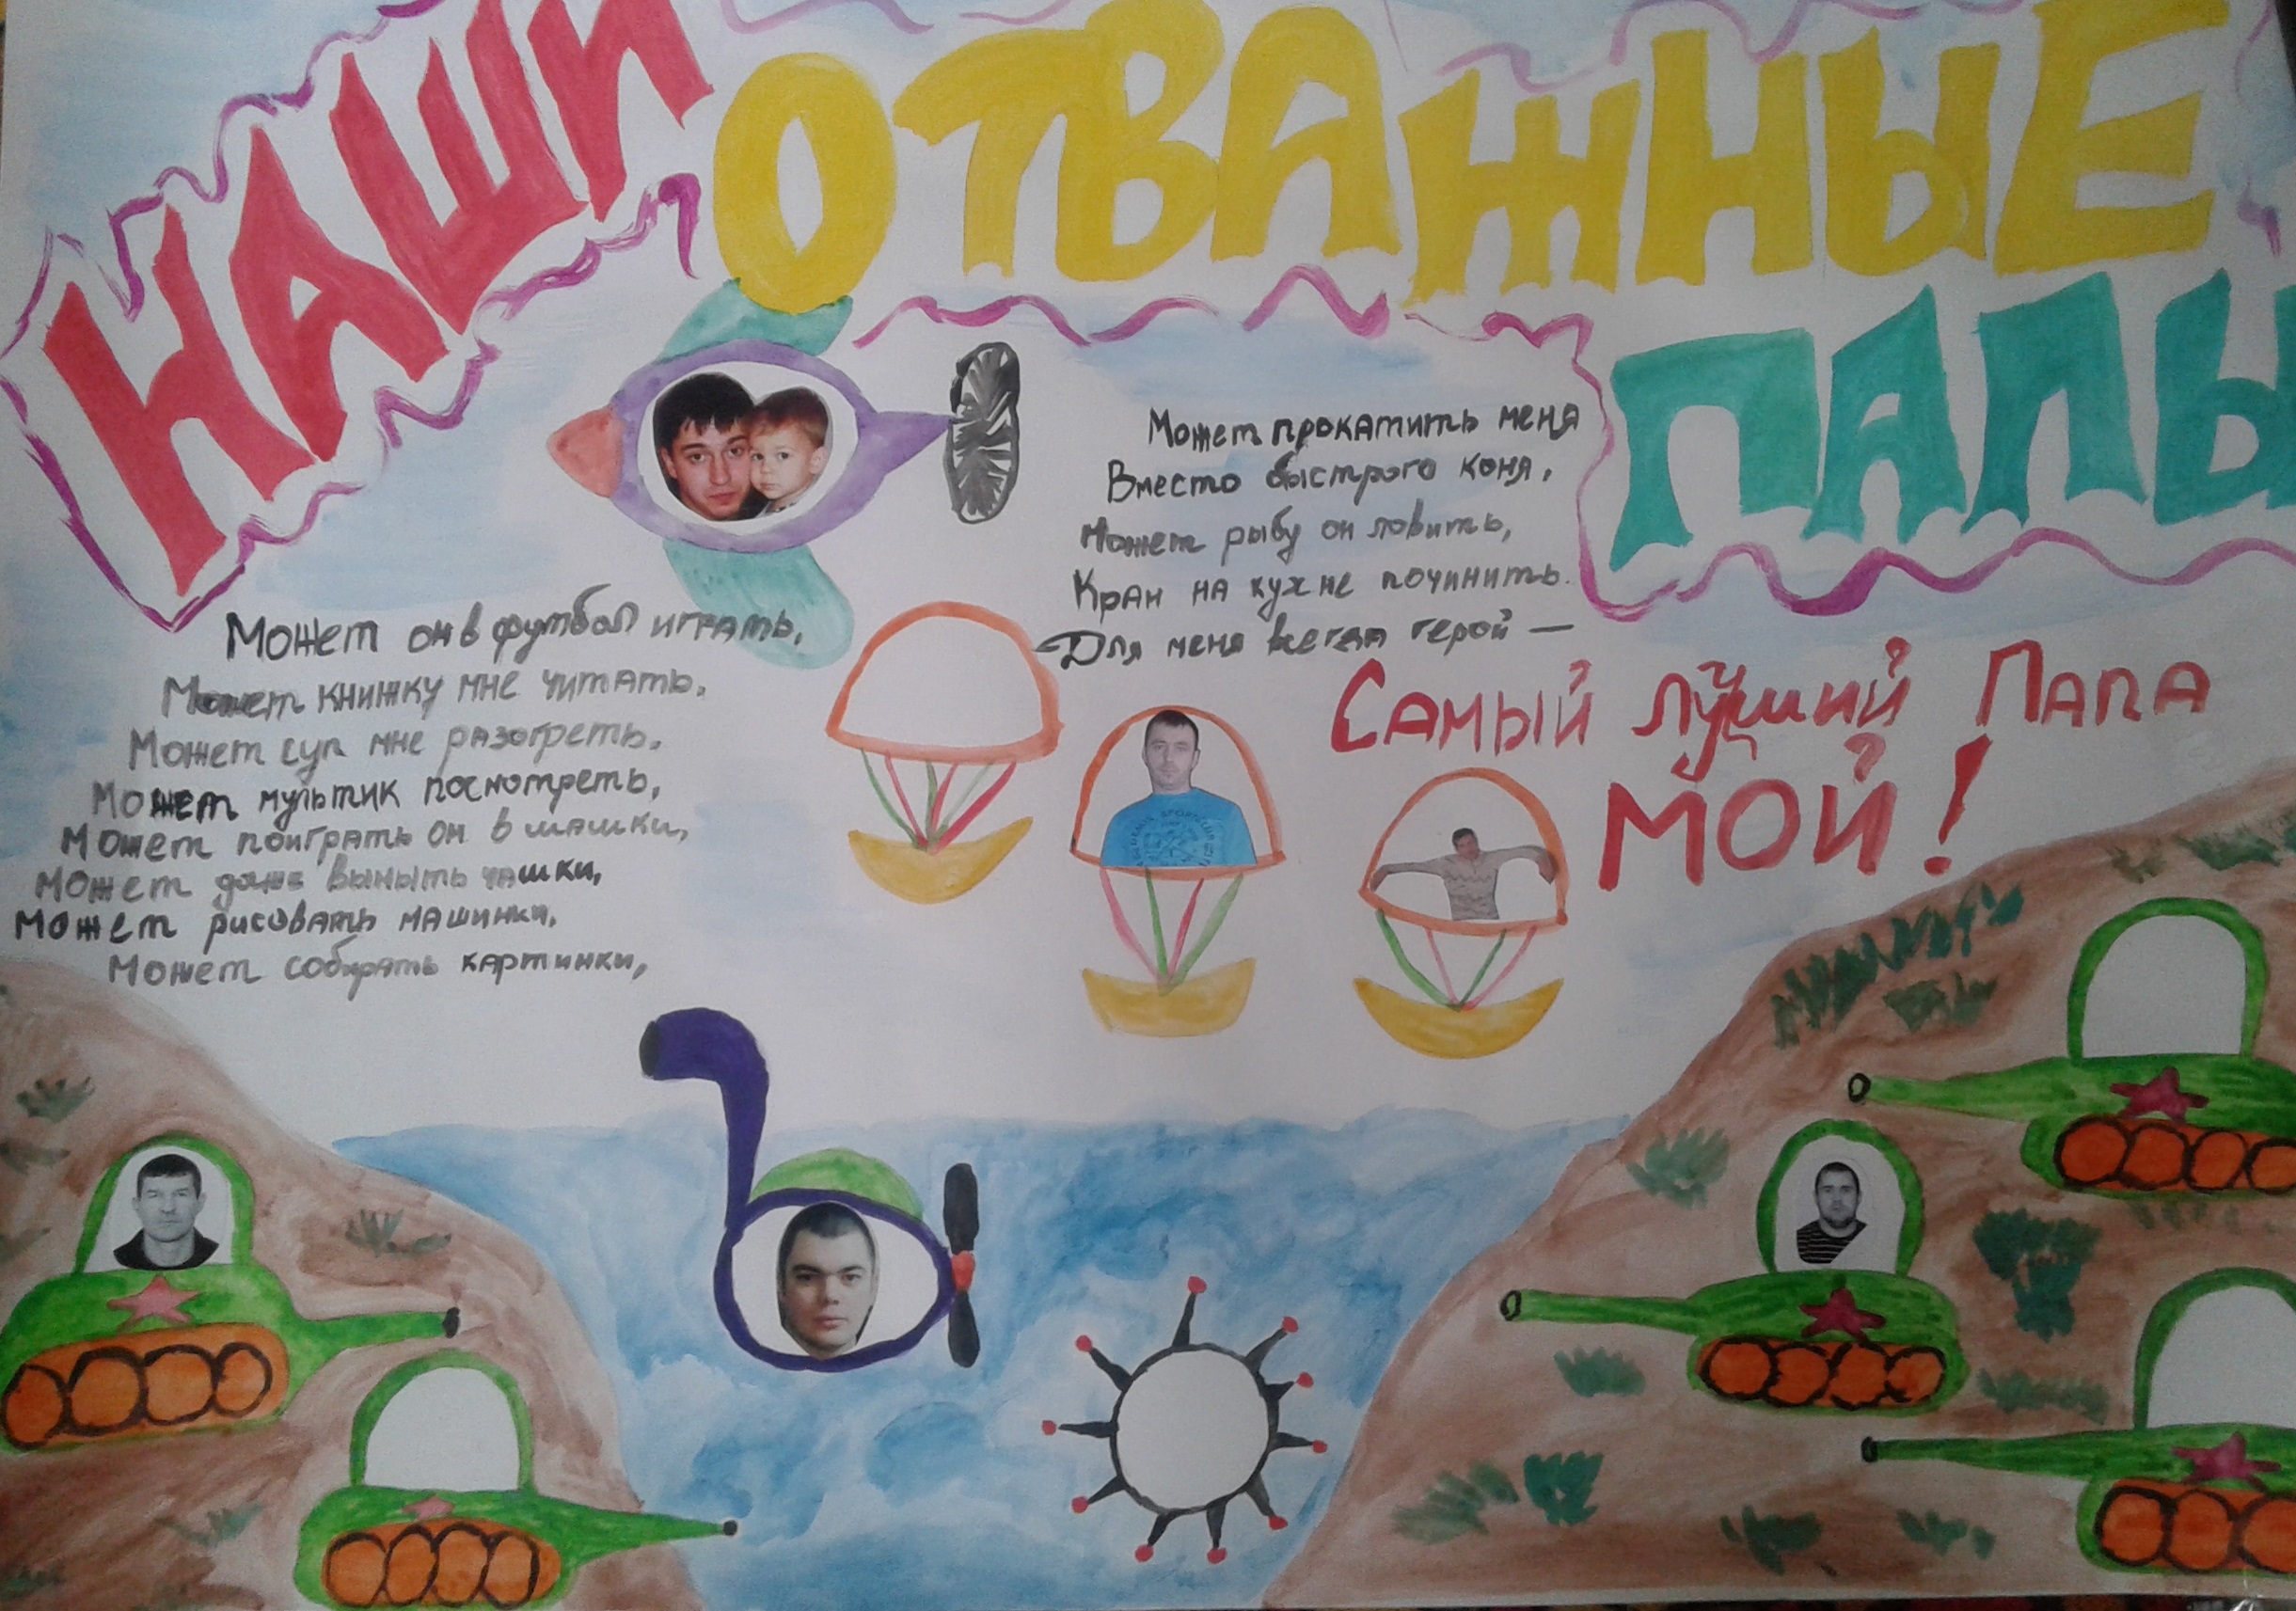 НАШИ
ОТВАЖНЫЕ
ПАПЫ
Может он в футбол играть,
Может книжку мне читать,
Может суп мне разогреть,
Может мультик посмотреть,
Может поиграть он в шашки,
Может даже вымыть чашки,
Может рисовать машинки,
Может собирать картинки,
Может прокатить меня
Вместо быстрого коня,
Может рыбу он ловить,
Кран на кухне починить.
Для меня всегда герой —
Самый лучший Папа
МОЙ!